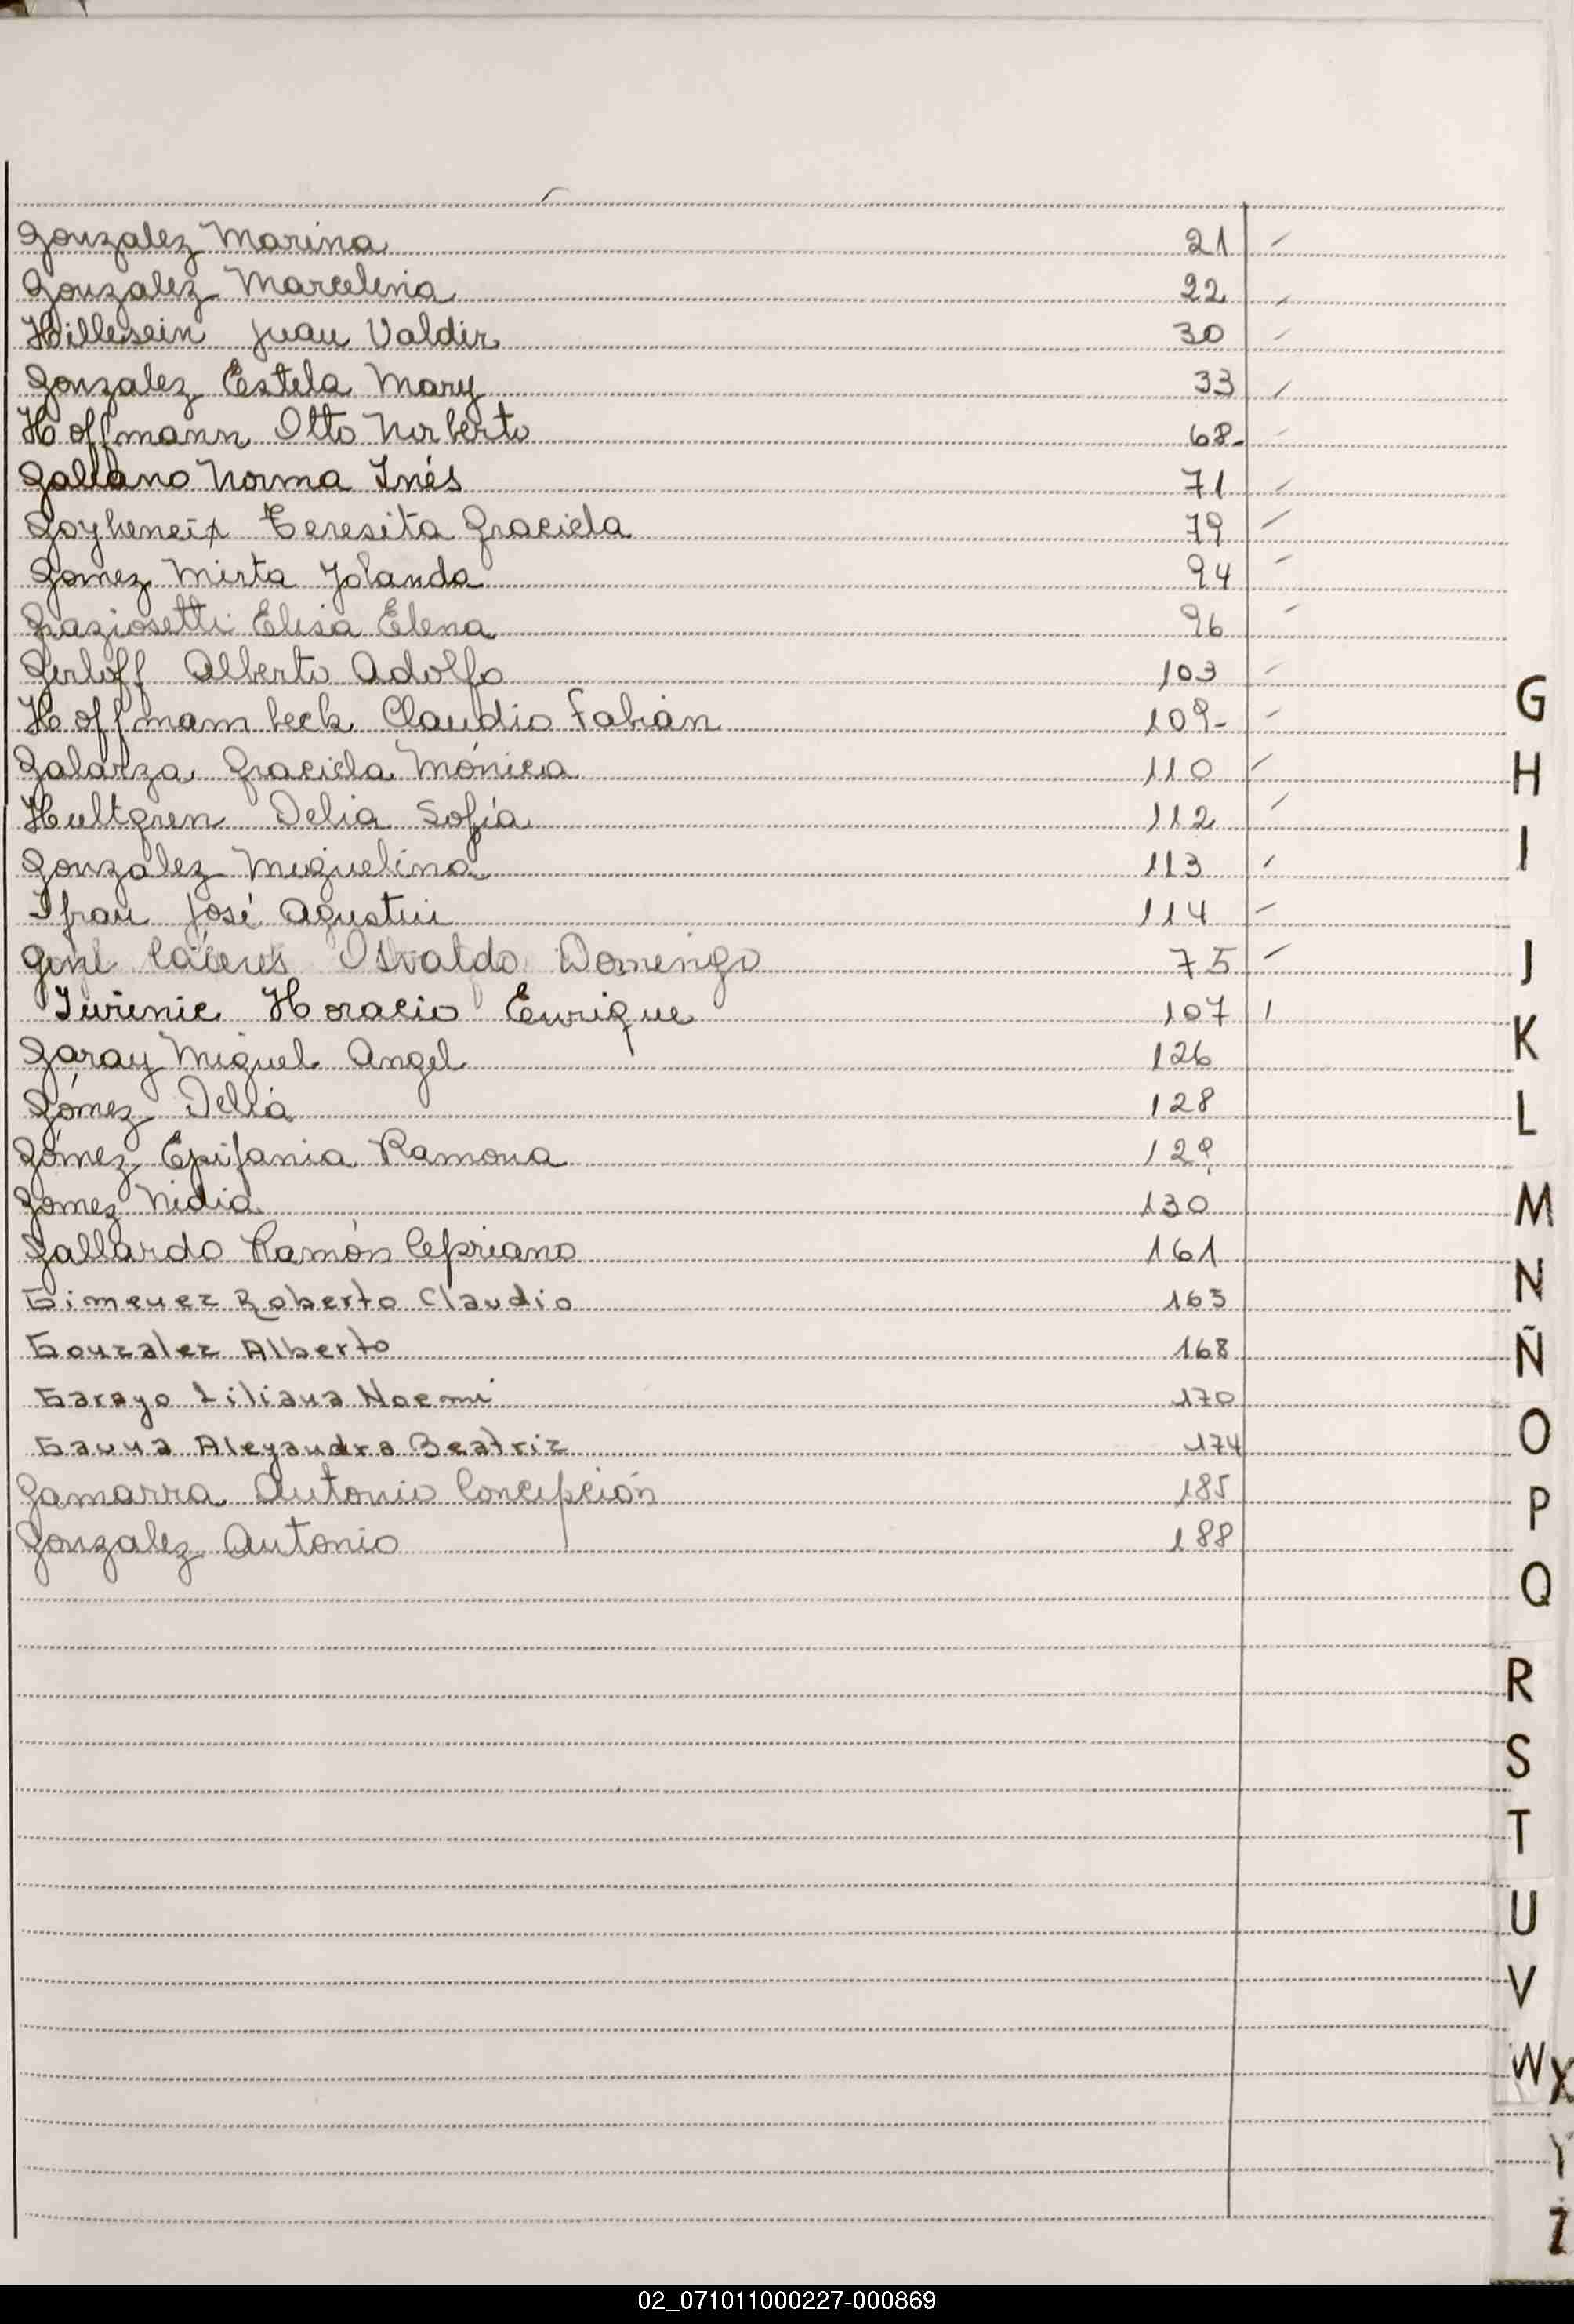 Gonzalez Marina 21
Gonzalez Marcelina 22
Hillesein Juan Valdir 30
Gonzalez Estela Mary 33
Hoffmann Otto Norberto 68-
Galeano Norma Inés 71
Goyheneix Teresita Graciela 79
Gomez Mirta Yolanda 94
Graziosetti Elisa Elena 96
Gerloff Alberto Adolfo 103
Hoffmambeck Claudio Fabián 109-
Galarza Graciela Mónica 110
Hultgren Delia Sofía 113 112
Gonzalez Miguelina 113
Ifran José Agustin 114
Osvaldo Domingo 75
Horacio Enrique 107
Garay Miguel Angel 126
Gómez Delia 128
Gómez Epifania Ramona 129
Gomez Nidia 130
Gallardo Ramón Cipriano 161
Gimenez Roberto Claudio 163
Gonzalez Alberto 168
Garayo Liliana Noemi 170
Gauna Aleyandra Beatriz 174
Gamarra Antonio Concepción 185
Gonzalez Antonio 188
G
H
I
J
K
L
M
N
Ñ
O
P
Q
R
S
T
U
V
W X
Y
Z
02_071011000227-000869